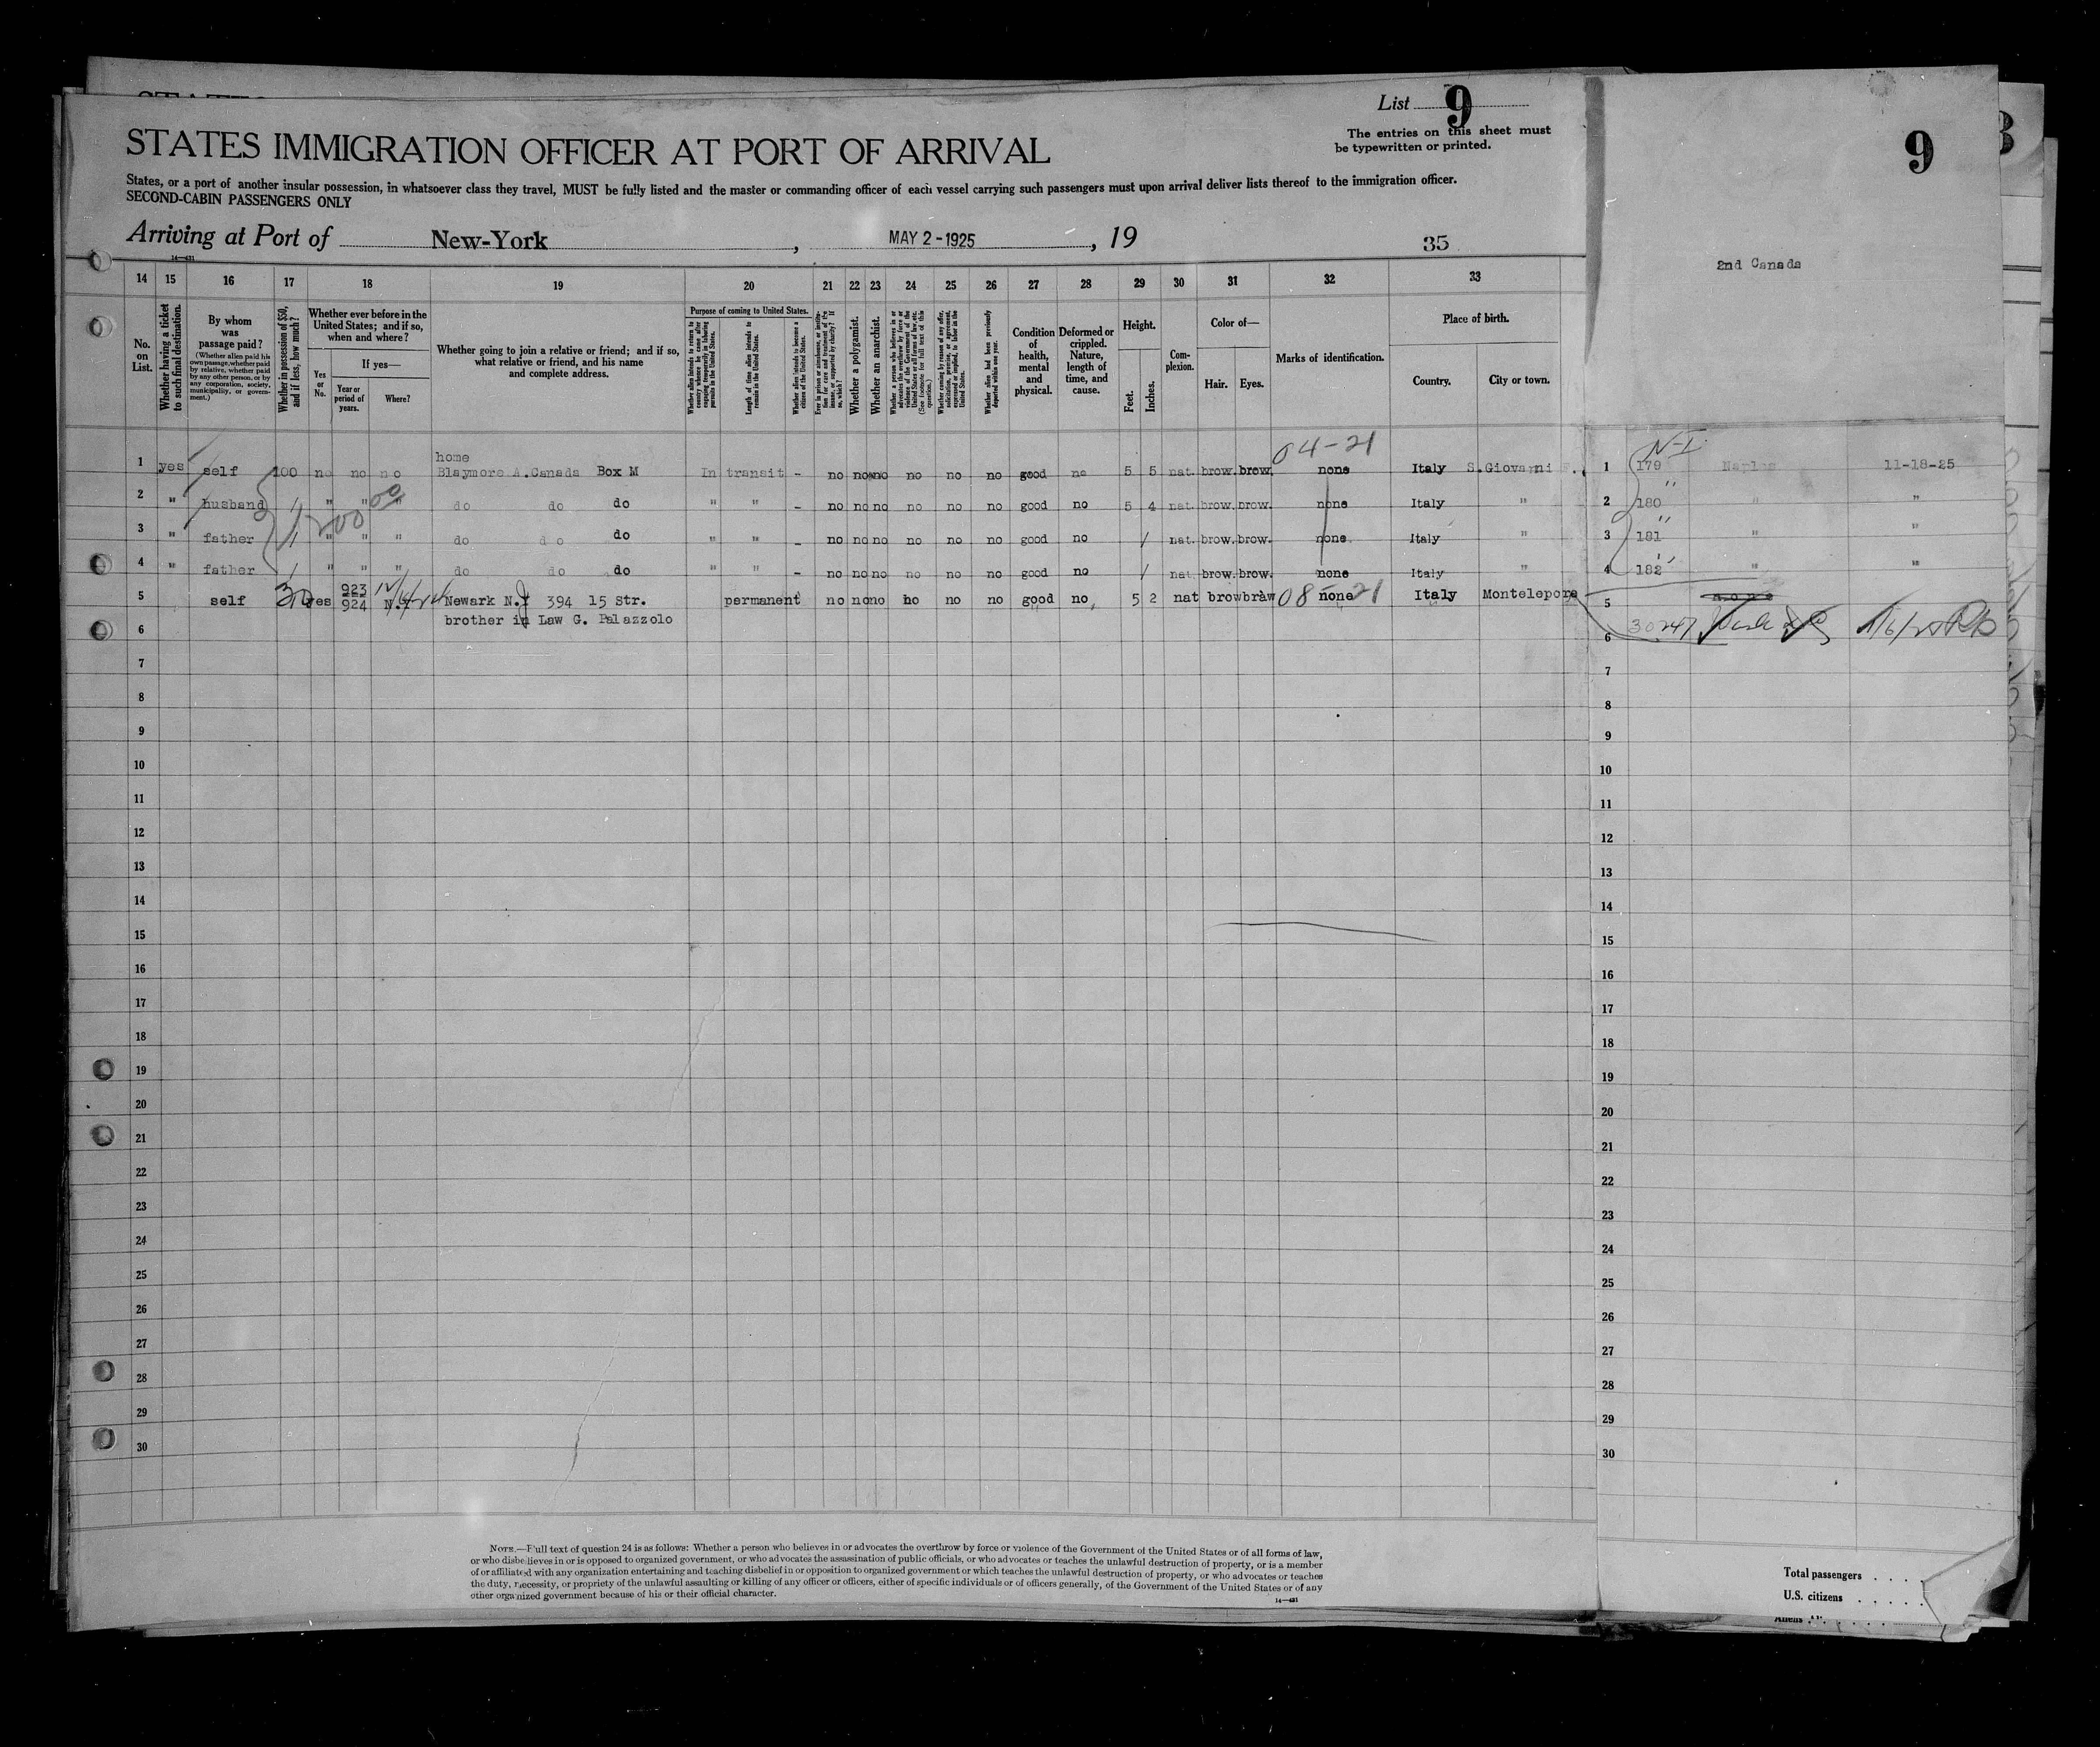 List 9
The entries on this sheet must
be typewritten or printed.
STATES IMMIGRATION OFFICER AT PORT OF ARRIVAL
States, or a port of another insular possession, in whatsoever class they travel, MUST be fully listed and the master or commanding officer of each vessel carrying such passengers must upon arrival deliver lists thereof to the immigration officer.
SECOND-CABIN PASSENGERS ONLY
Arriving at Port of New-York, MAY 2-1925, 19
35
9
2nd Canada
14—431
14 15 16 17 18 19 20 21 22 23 24 25 26 27 28 29 30 31 32 33
No. on List.
Whether having a ticket to such final destination.
By whom was passage paid?
(Whether alien paid his own passage, whether paid by relative, whether paid by any other person, or by any corporation, society, municipality, or government.)
Whether in possession of $50, and if less, how much?
Whether ever before in the United States; and if so, when and where?
Yes or No.
If yes—
Year or period of years.
Where?
Whether going to join a relative or friend; and if so, what relative or friend, and his name and complete address.
Purpose of coming to United States.
Length of time alien intends to remain in the United States.
Whether alien intends to become a citizen of the United States.
Whether a polygamist.
Whether an anarchist.
Condition of health, mental and physical.
Deformed or crippled. Nature, length of time, and cause.
Height.
Feet.
Inches.
Complexion.
Color of—
Hair.
Eyes.
Marks of identification.
Place of birth.
Country.
City or town.
04-21
home
1 yes self 100 no no no Blaymore A.Canada Box M In transit - no no no no no no good no 5 5 nat. brow. brow. none Italy S.Giovanni
2 " husband " " " do do do " " - no no no no no no good no 5 4 nat. brow. brow. none Italy "
200 00
3 " father " " " do do do " " - no no no no no no good no nat. brow. brow. none Italy "
4 " father " " " do do do " " - no no no no no no good no nat. brow. brow. none Italy "
5 self 30 yes 923 924 N.Y Newark N.J 394 15 Str. permanent no no no no no no good no 5 2 nat brow braw 08 none 21 Italy Montelepore
6 brother in Law G. Palazzolo
7
8
9
10
11
12
13
14
15
16
17
18
19
20
21
22
23
24
25
26
27
28
29
30
N-I
1 179 Naples 11-18-25
2 180 " "
3 181 " "
4 182 " "
5
6
7
8
9
10
11
12
13
14
15
16
17
18
19
20
21
22
23
24
25
26
27
28
29
30
NOTE.—Full text of question 24 is as follows: Whether a person who believes in or advocates the overthrow by force or violence of the Government of the United States or of all forms of law,
or who disbelieves in or is opposed to organized government, or who advocates the assassination of public officials, or who advocates or teaches the unlawful destruction of property, or is a member
of or affiliated with any organization entertaining and teaching disbelief in or opposition to organized government or which teaches the unlawful destruction of property, or who advocates or teaches
the duty, necessity, or propriety of the unlawful assaulting or killing of any officer or officers, either of specific individuals or of officers generally, of the Government of the United States or of any
other organized government because of his or their official character.
14—431
Total passengers
U.S. citizens